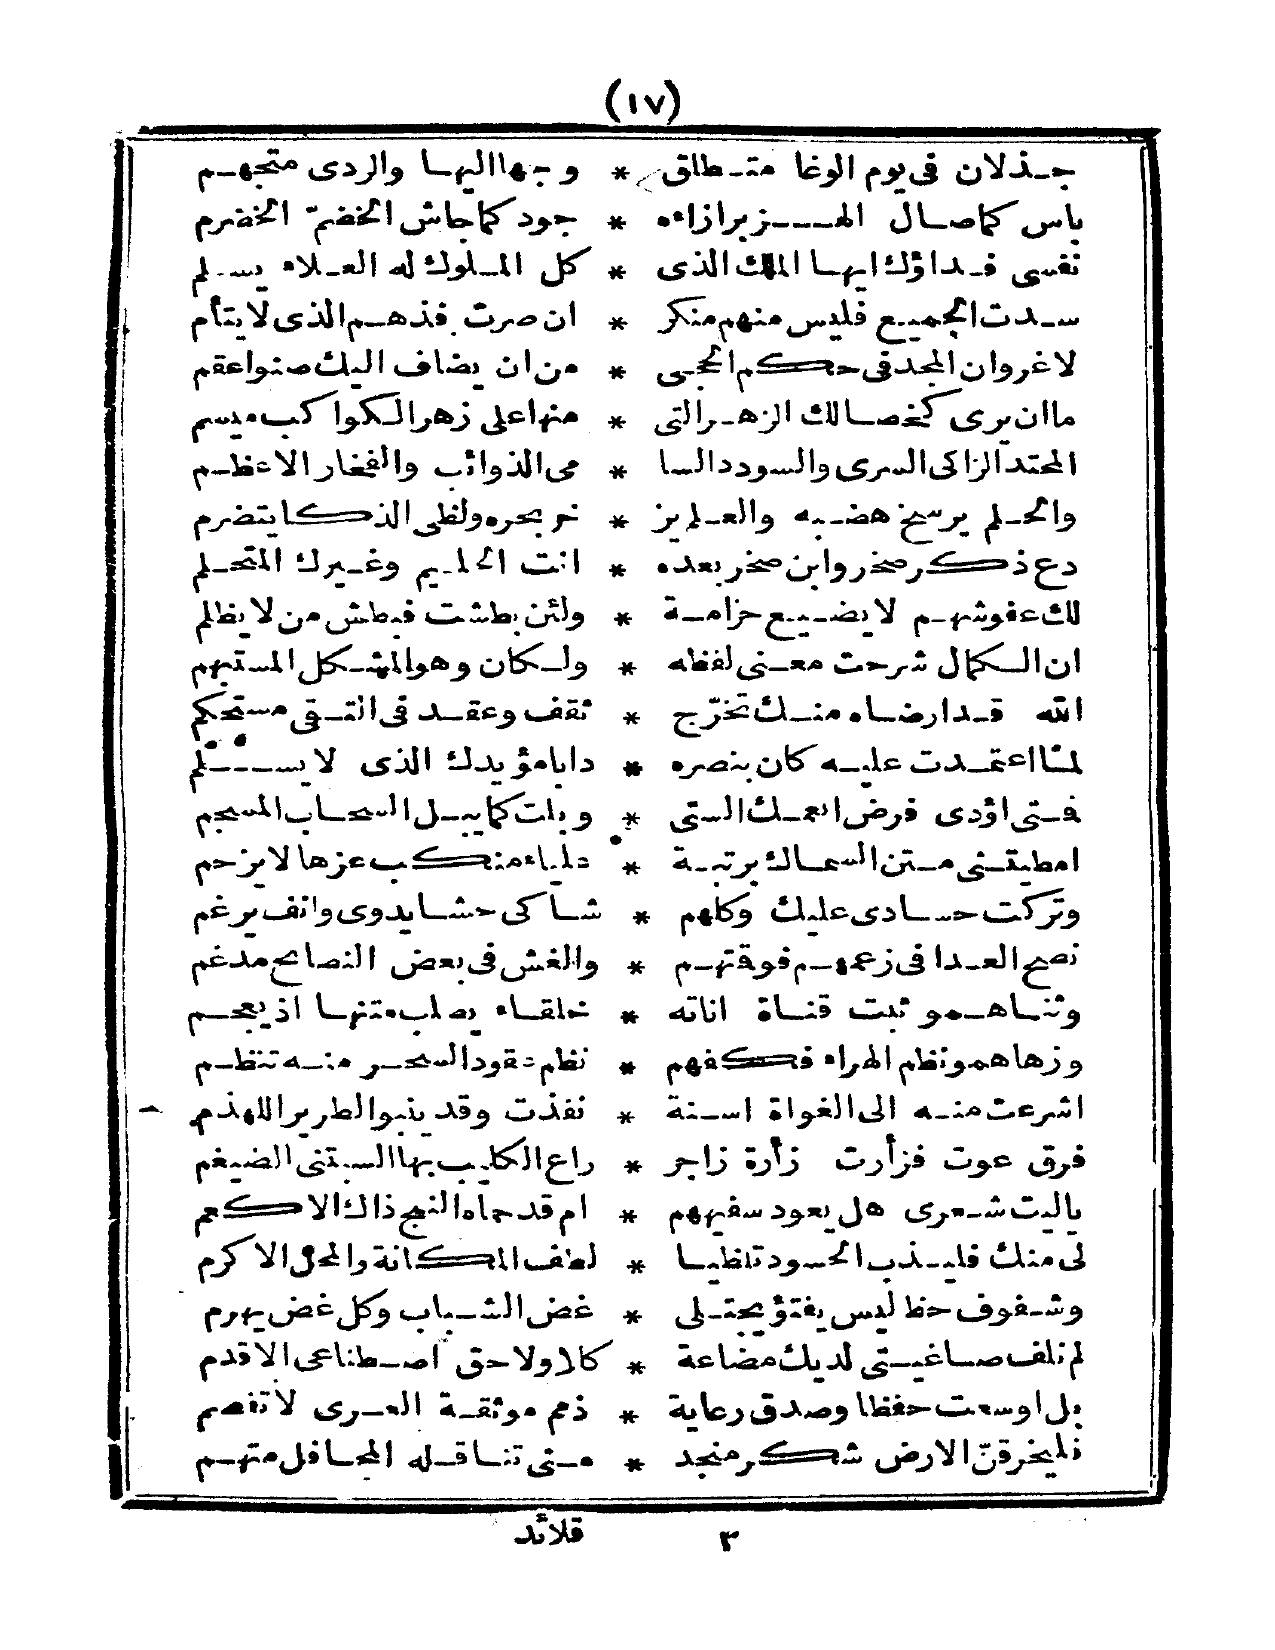 (١٧)
جذلان فى يوم الوغا متطلق * وجها اليها والردى متجهم
باس كما صال الهزبر ازاءه * جود كما جاش الخضمّ الخضرم
نفسى فداؤك ايها الملك الذى * كل الملوك له العلاء يسلم
سدت الجميع فليس منهم منكر * ان صرت فذهم الذى لا يتأم
لاغروان المجد فى حكم الحجى * من ان يضاف اليك صنواعقم
ماان يرى كخصالك الزهر التى * منها على زهر الكواكب ميسم
المحتد الزاكى السرى والسودد السا * مى الذوائب والفخار الاعظم
والحلم يرسخ هضبه والعلم يز * خر بحره ولظى الذكا يتضرم
دع ذكر صخر وابن صخر بعده * انت الحليم وغيرك المتحلم
لك عفوشهم لا يضيع حزامة * ولئن بطشت فبطش من لا يظلم
ان الكمال شرحت معنى لفظه * ولكان وهو المشكل المستبهم
الله قد ارضاه منك تحرّج * ثقف وعقد فى التقى مستحكم
لمّا اعتمدت عليه كان بنصره * دابا مؤيدك الذى لا يسلم
فمتى اؤدى فرض انعمك التى * وبلت كما يبل السحاب المسجم
امطيتنى متن السماك برتبة * علياء منكب عزها لا يزحم
وتركت حسادى عليك وكلهم * شاكى حشا يدوى وانف يرغم
نصح العدا فى زعمهم فوقتهم * والغش فى بعض النصائح مدغم
وثناهمو ثبت قناة اناته * خلقاء يصلب متنها اذ يعجم
وزهاهمو نظم الهراء فكفهم * نظم عقود السحر منه تنظم
اشرعت منه الى الغواة اسنة * نفذت وقد ينبو الطرير اللهذم
فرق عوت فزأرت زأرة زاجر * راع الكليب بها السبنتى الضيغم
ياليت شعرى هل يعود سفيههم * ام قد حماه النبح ذاك الاكعم
لى منك فليذب الحسود تلظيا * لطف المكانة والمحل الاكرم
وشفوف حظ ليس يفتؤ يجتلى * غض الشباب وكل غض يهرم
لم تلف صاغيتى لديك مضاعة * كلا ولا حق اصطناعى الاقدم
بل اوسعت حفظا وصدق رعاية * ذمم موثقة العرى لا تفصم
فليخرقنّ الارض شكر منجد * منى تناقله المحافل متهم
٣ قلائد